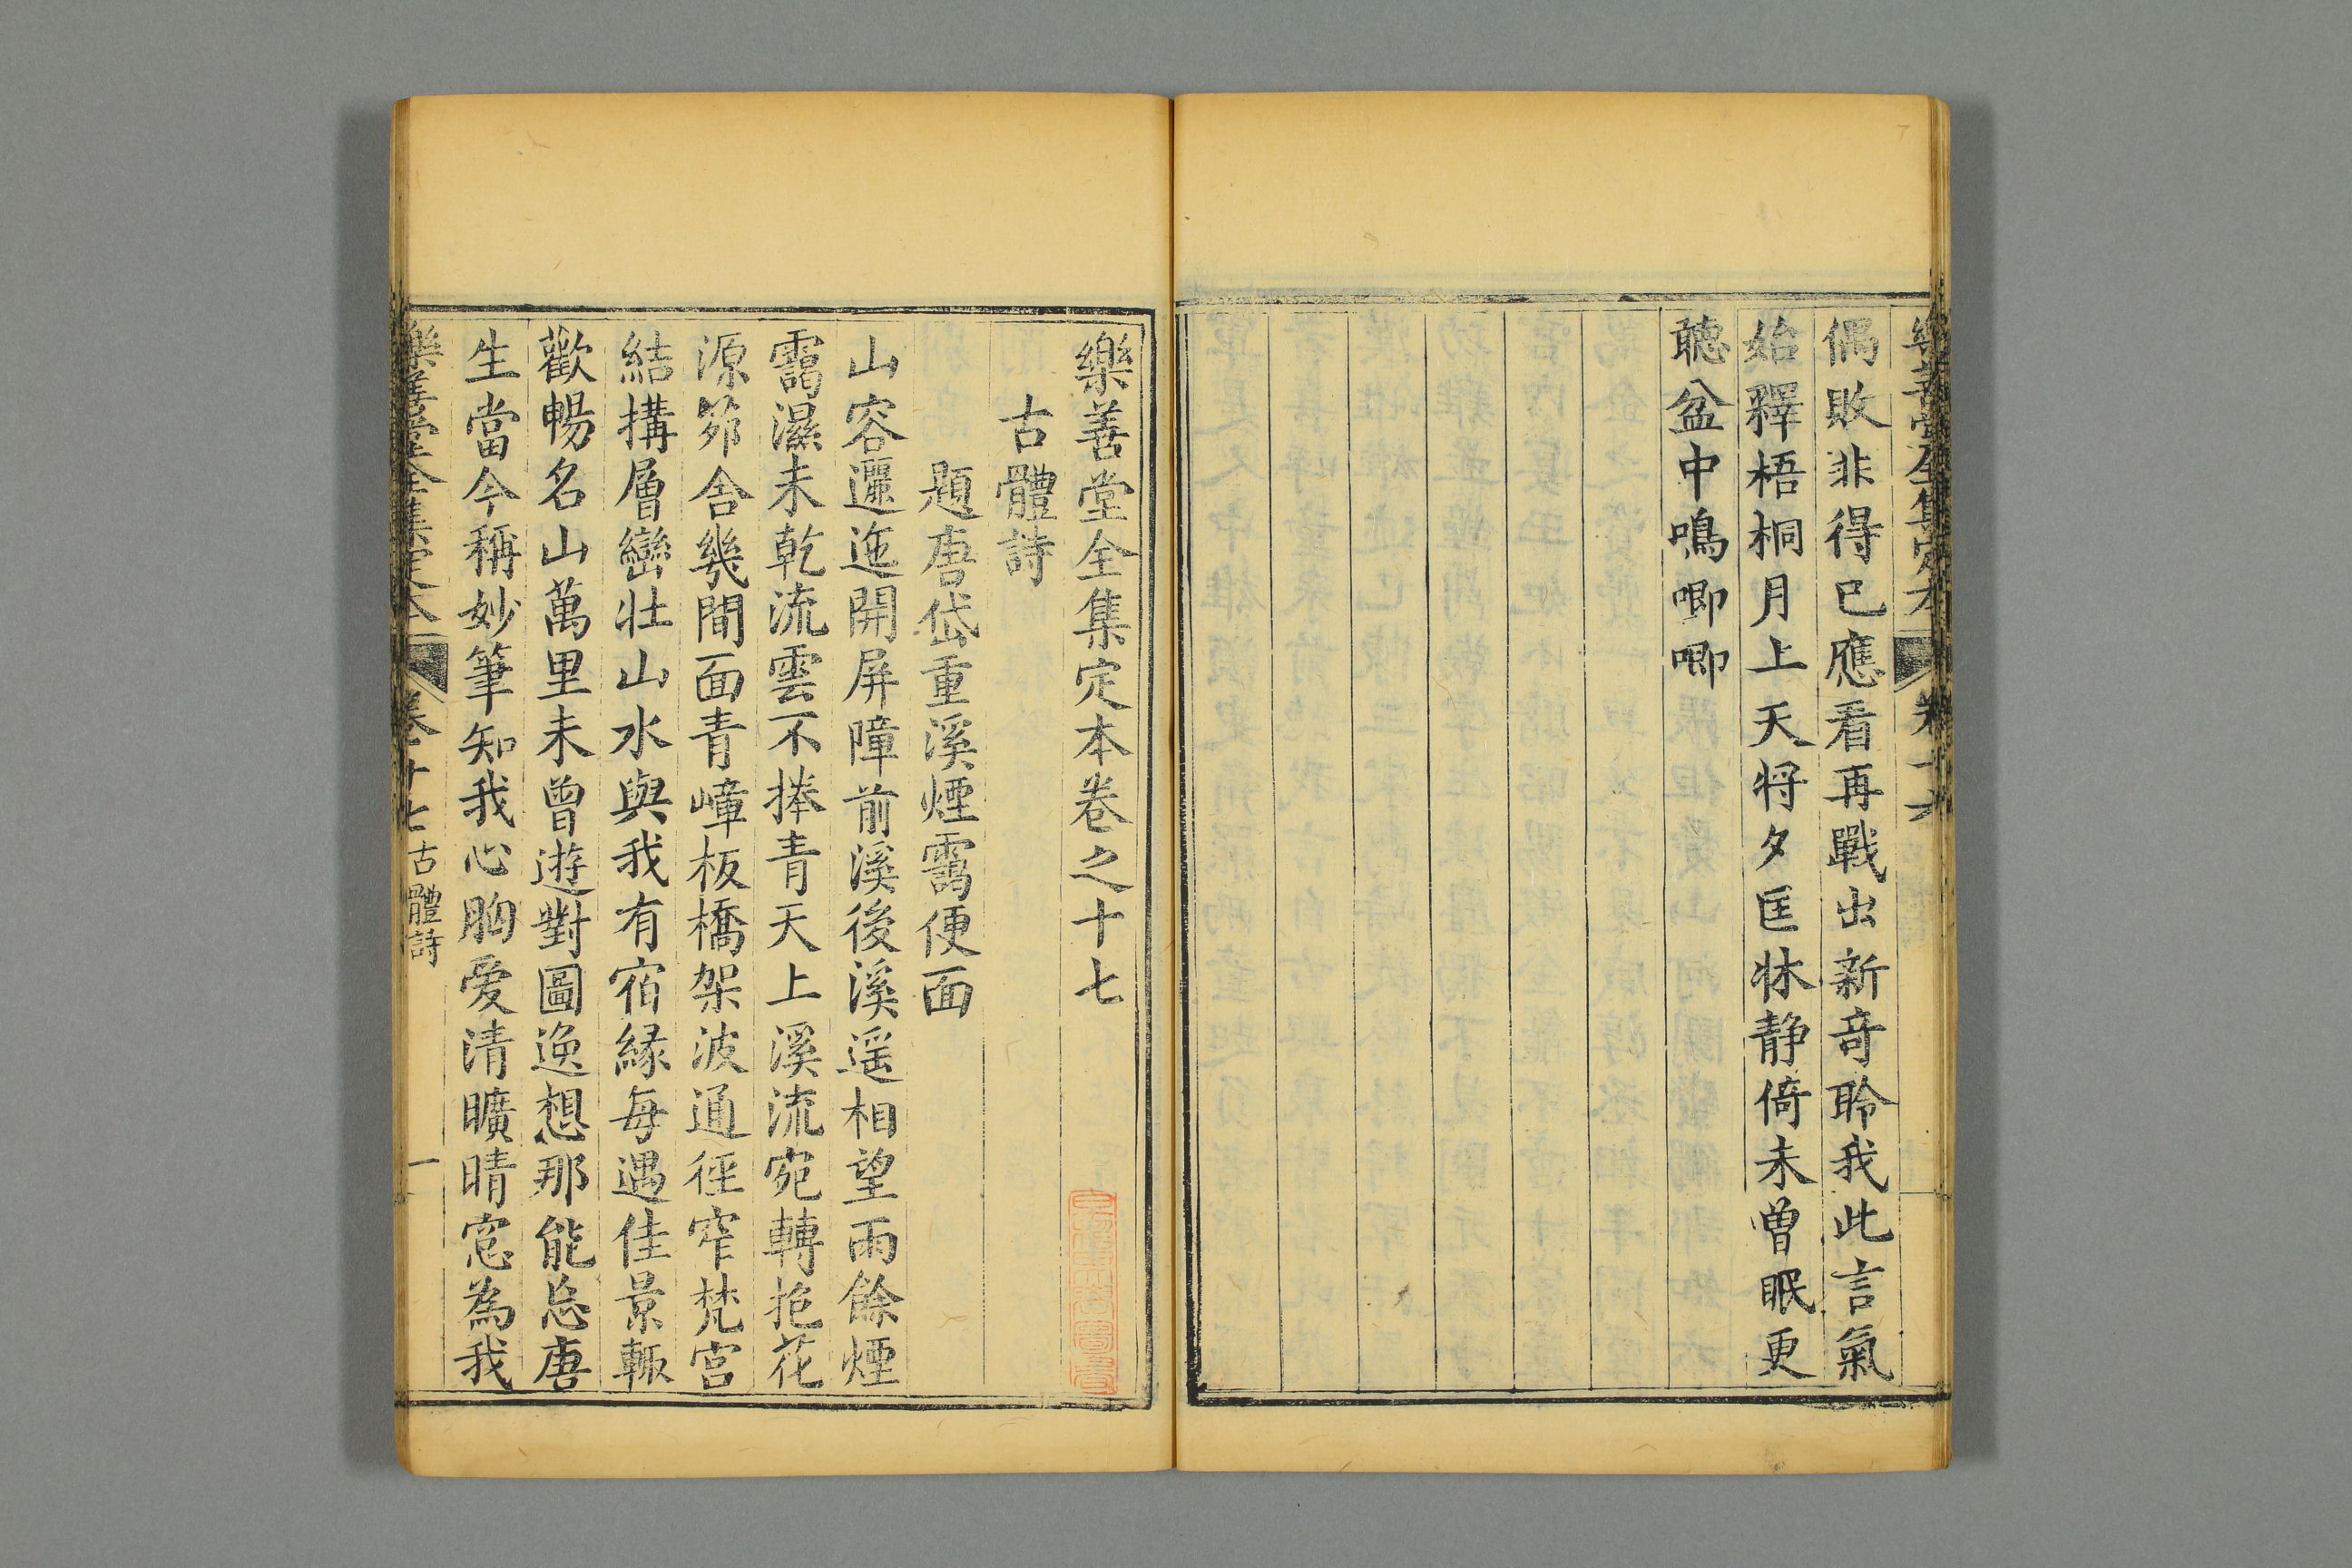 樂善堂全集定本 卷十六
偶敗非得已應看再戰出新竒聆我此言氣
始釋梧桐月上天将夕匡牀静倚未曽眠更
聽盆中鳴唧唧
樂善堂全集定本卷之十七
古體詩
題唐岱重溪煙靄便面
山容邐迤開屏障前溪後溪遥相望雨餘煙
靄濕未乾流雲不捧青天上溪流宛轉抱花
源茆舎幾間面青嶂板橋架波通徑窄梵宫
結搆層巒壮山水與我有宿縁每遇佳景輙
歡暢名山萬里未曾遊對圖逸想那能忘唐
生當今稱妙筆知我心胸愛清曠晴窓為我
樂善堂全集定本 卷十七 古體詩 一